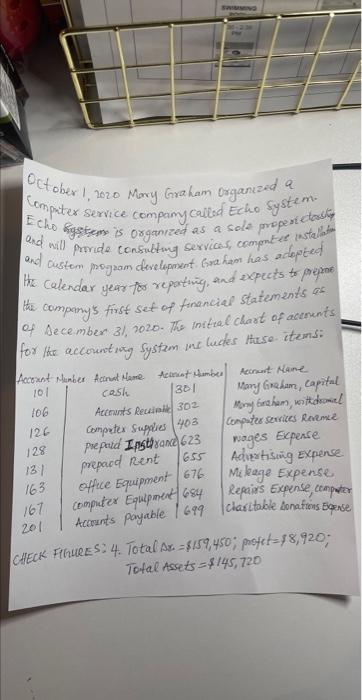 SWIMMING
PM
October 1, 2020 Mary Graham Organized a
Computer service company called Echo System.
Echo System is organized as a sole propérietorship
and will provide consulting services, computer installation
and custom program development. Graham has adopted
the calendar year for reporting, and expects to prepare
the company's first set of financial statements as
of December 31, 2020. The initial chart of accounts
for the accounting system includes these items:
Account Number Account Name Account Number Account Name
101 cash 301 Mary Graham, Capital
106 Accounts Receivable 302 Mary Graham, withdrawal
126 Computer Supplies 403 Computer services Revenue
128 prepaid Insurance 623 wages Expense
131 prepaod Rent 655 Advertising Expense
163 office Equipment 676 Mileage Expense
167 computer Equipment 684 Repairs Expense, computer
201 Accounts payable 699 Charitable Donations Expense
CHECK FIGURES: 4. Total Dr. = $159,450; profit = $8,920;
Total Assets = $145,720